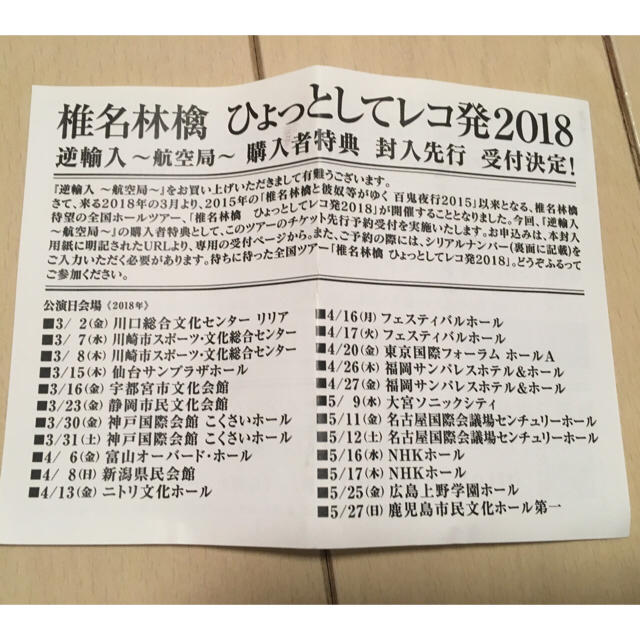 椎名林檎 ひょっとしてレコ発2018
逆輸入 ～航空局～ 購入者特典 封入先行 受付決定!
『逆輸入 ～航空局～』をお買い上げいただきまして有難うございます。
さて、来る2018年の3月より、2015年の「椎名林檎と彼奴等がゆく 百鬼夜行2015」以来となる、椎名林檎
待望の全国ホールツアー、「椎名林檎 ひょっとしてレコ発2018」が開催することとなりました。今回、『逆輸入
～航空局～』の購入者特典として、このツアーのチケット先行予約受付を実施いたします。お申込みは、本封入
用紙に明記されたURLより、専用の受付ページから。また、ご予約の際には、シリアルナンバー(裏面に記載)を
ご入力いただく必要があります。待ちに待った全国ツアー「椎名林檎 ひょっとしてレコ発2018」。どうぞふるって
ご参加ください。
公演日会場《2018年》
■3/ 2(金) 川口総合文化センター リリア
■3/ 7(水) 川崎市スポーツ・文化総合センター
■3/ 8(木) 川崎市スポーツ・文化総合センター
■3/15(木) 仙台サンプラザホール
■3/16(金) 宇都宮市文化会館
■3/23(金) 静岡市民文化会館
■3/30(金) 神戸国際会館 こくさいホール
■3/31(土) 神戸国際会館 こくさいホール
■4/ 6(金) 富山オーバード・ホール
■4/ 8(日) 新潟県民会館
■4/13(金) ニトリ文化ホール
■4/16(月) フェスティバルホール
■4/17(火) フェスティバルホール
■4/20(金) 東京国際フォーラム ホールA
■4/26(木) 福岡サンパレスホテル&ホール
■4/27(金) 福岡サンパレスホテル&ホール
■5/ 9(水) 大宮ソニックシティ
■5/11(金) 名古屋国際会議場センチュリーホール
■5/12(土) 名古屋国際会議場センチュリーホール
■5/16(水) NHKホール
■5/17(木) NHKホール
■5/25(金) 広島上野学園ホール
■5/27(日) 鹿児島市民文化ホール第一